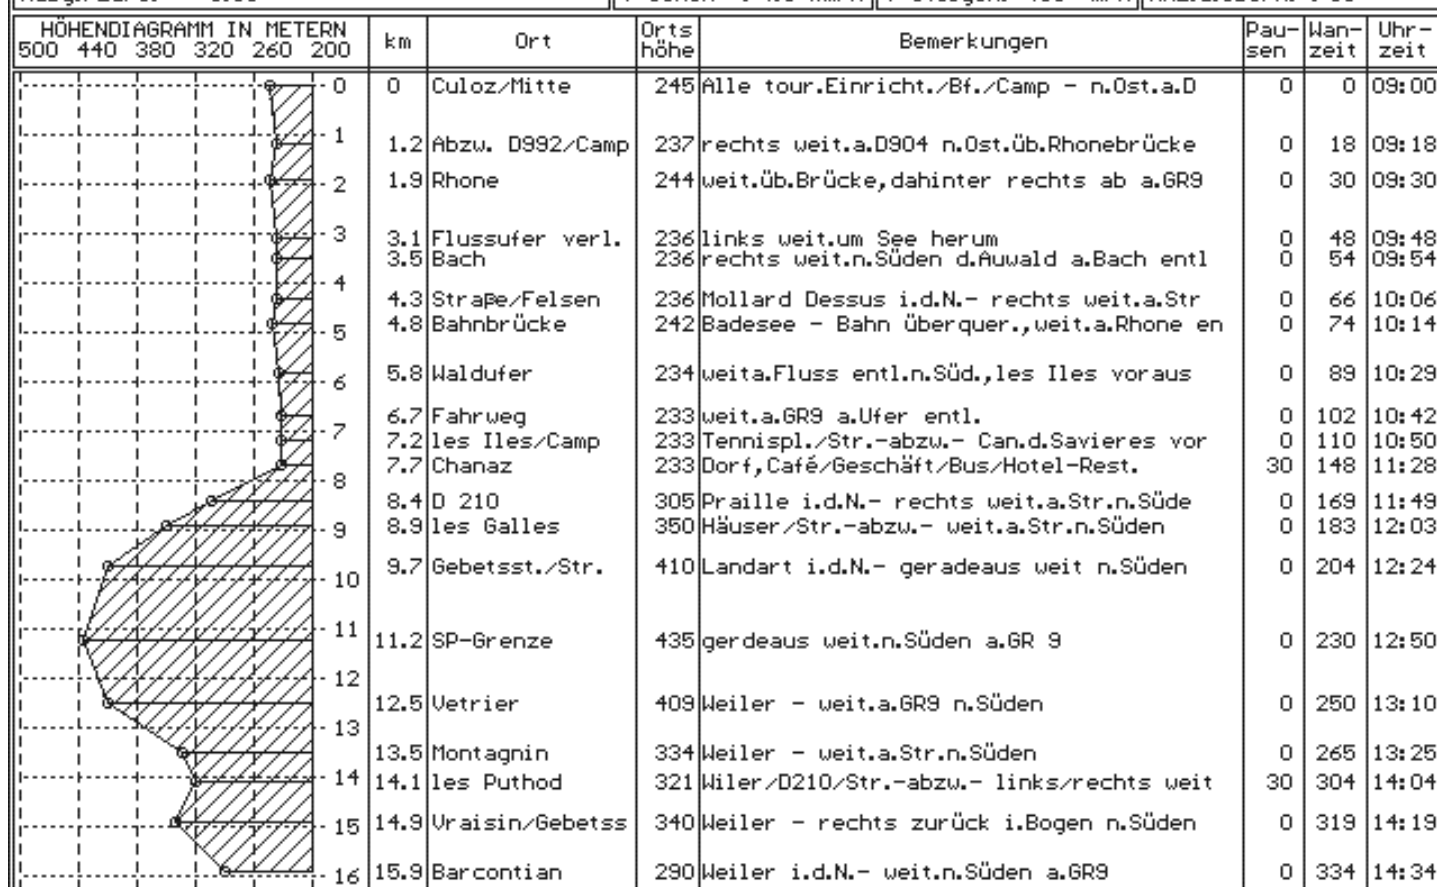 HÖHENDIAGRAMM IN METERN
500 440 380 320 260 200
km Ort Orts höhe Bemerkungen Pau- sen Wan- zeit Uhr- zeit
0 0 Culoz/Mitte 245 Alle tour.Einricht./Bf./Camp - n.Ost.a.D 0 0 09:00
1 1.2 Abzw. D992/Camp 237 rechts weit.a.D904 n.Ost.üb.Rhonebrücke 0 18 09:18
2 1.9 Rhone 244 weit.üb.Brücke,dahinter rechts ab a.GR9 0 30 09:30
3 3.1 Flussufer verl. 236 links weit.um See herum 0 48 09:48
3.5 Bach 236 rechts weit.n.Süden d.Auwald a.Bach entl 0 54 09:54
4 4.3 Straße/Felsen 236 Mollard Dessus i.d.N.- rechts weit.a.Str 0 66 10:06
5 4.8 Bahnbrücke 242 Badesee - Bahn überquer.,weit.a.Rhone en 0 74 10:14
6 5.8 Waldufer 234 weita.Fluss entl.n.Süd.,les Iles voraus 0 89 10:29
6.7 Fahrweg 233 weit.a.GR9 a.Ufer entl. 0 102 10:42
7 7.2 les Iles/Camp 233 Tennispl./Str.-abzw.- Can.d.Savieres vor 0 110 10:50
8 7.7 Chanaz 233 Dorf,Café/Geschäft/Bus/Hotel-Rest. 30 148 11:28
8.4 D 210 305 Praille i.d.N.- rechts weit.a.Str.n.Süde 0 169 11:49
9 8.9 les Galles 350 Häuser/Str.-abzw.- weit.a.Str.n.Süden 0 183 12:03
10 9.7 Gebetsst./Str. 410 Landart i.d.N.- geradeaus weit n.Süden 0 204 12:24
11 11.2 SP-Grenze 435 gerdeaus weit.n.Süden a.GR 9 0 230 12:50
12 12.5 Vetrier 409 Weiler - weit.a.GR9 n.Süden 0 250 13:10
13 13.5 Montagnin 334 Weiler - weit.a.Str.n.Süden 0 265 13:25
14 14.1 les Puthod 321 Wiler/D210/Str.-abzw.- links/rechts weit 30 304 14:04
15 14.9 Vraisin/Gebetss 340 Weiler - rechts zurück i.Bogen n.Süden 0 319 14:19
16 15.9 Barcontian 290 Weiler i.d.N.- weit.n.Süden a.GR9 0 334 14:34